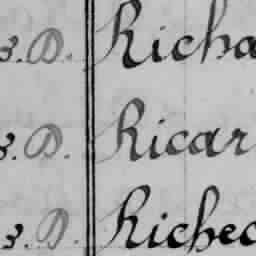 3. D. Richa
3. D. Ricar
3. D. Richec